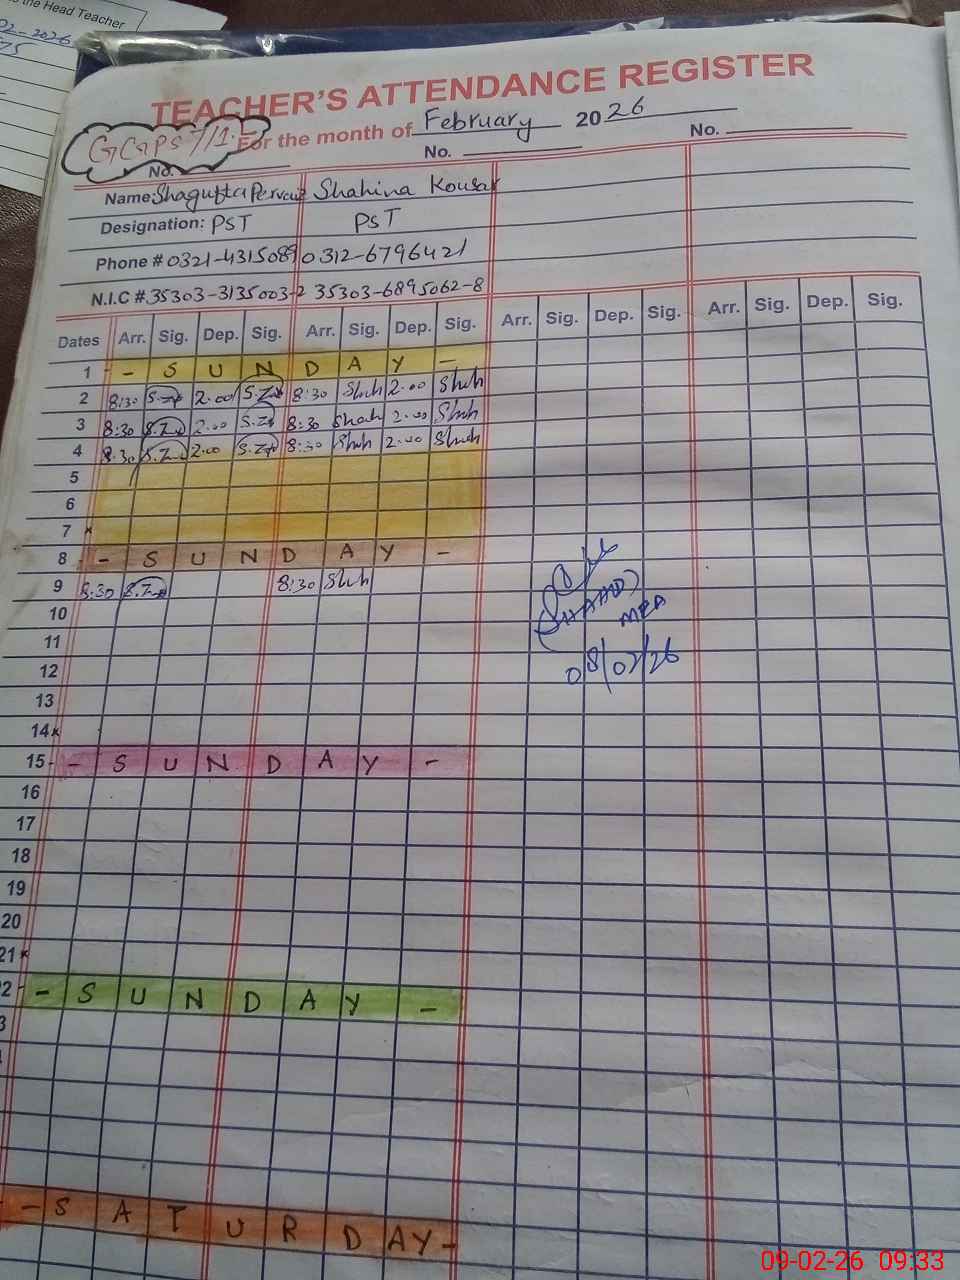 the Head Teacher
02-2026
TEACHER'S ATTENDANCE REGISTER
GGPS 7/1.
For the month of February 2026
No. No. No.
Name: Shagufta Pervaiz Shahina Kousar
Designation: PST PST
Phone # 0321-4315089 0312-6796421
N.I.C #. 35303-3135003-2 35303-6895062-8
Dates Arr. Sig. Dep. Sig. Arr. Sig. Dep. Sig. Arr. Sig. Dep. Sig. Arr. Sig. Dep. Sig.
1 - S U N D A Y -
2 8:30 2.00 8:30 Shah 2.00 Shah
3 8:30 2.00 8:30 Shah 2.00 Shah
4 8:30 2.00 8:30 Shah 2.00 Shah
5
6
7
8 - S U N D A Y -
9 8:30 8:30 Shah
10
11
12
13
14
15 - S U N D A Y -
16
17
18
19
20
21
2 - S U N D A Y -
3
- S A T U R D A Y -
MEA
08/02/26
09-02-26 09:33